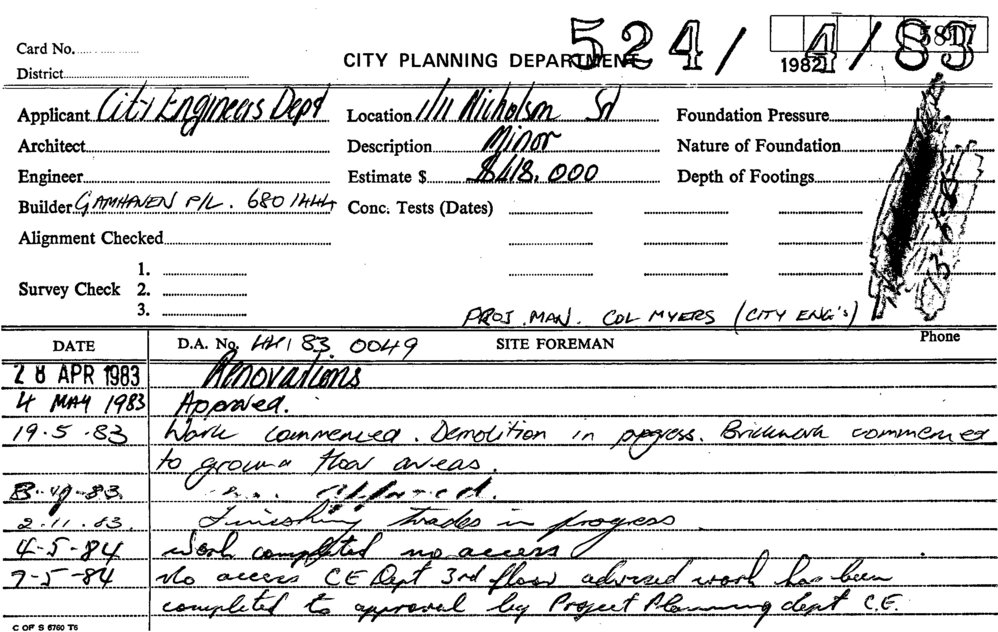 Card No.
District
CITY PLANNING DEPARTMENT
524/4/83
1982
Applicant City Engineers Dept
Location 1/11 Nicholson St
Foundation Pressure
Architect
Description Minor
Nature of Foundation
Engineer
Estimate $ $418.000
Depth of Footings
Builder GAMHAVEN P/L. 680 1444
Conc. Tests (Dates)
Alignment Checked
Survey Check
1.
2.
3.
PROJ. MAN. COL MYERS (CITY ENG's)
DATE
D.A. No. 44 83 0049
SITE FOREMAN
Phone
28 APR 1983 Renovations
4 MAY 1983 Approved.
19.5.83 Work commenced. Demolition in progress. Brickwork commenced
to ground floor areas.
2.11.83. Finishing trades in progress.
4-5-84 work completed no access
7-5-84 No access C.E Dept 3rd floor advised work has been
completed to approval by Project Planning dept C.E.
C OF S 6760 T6